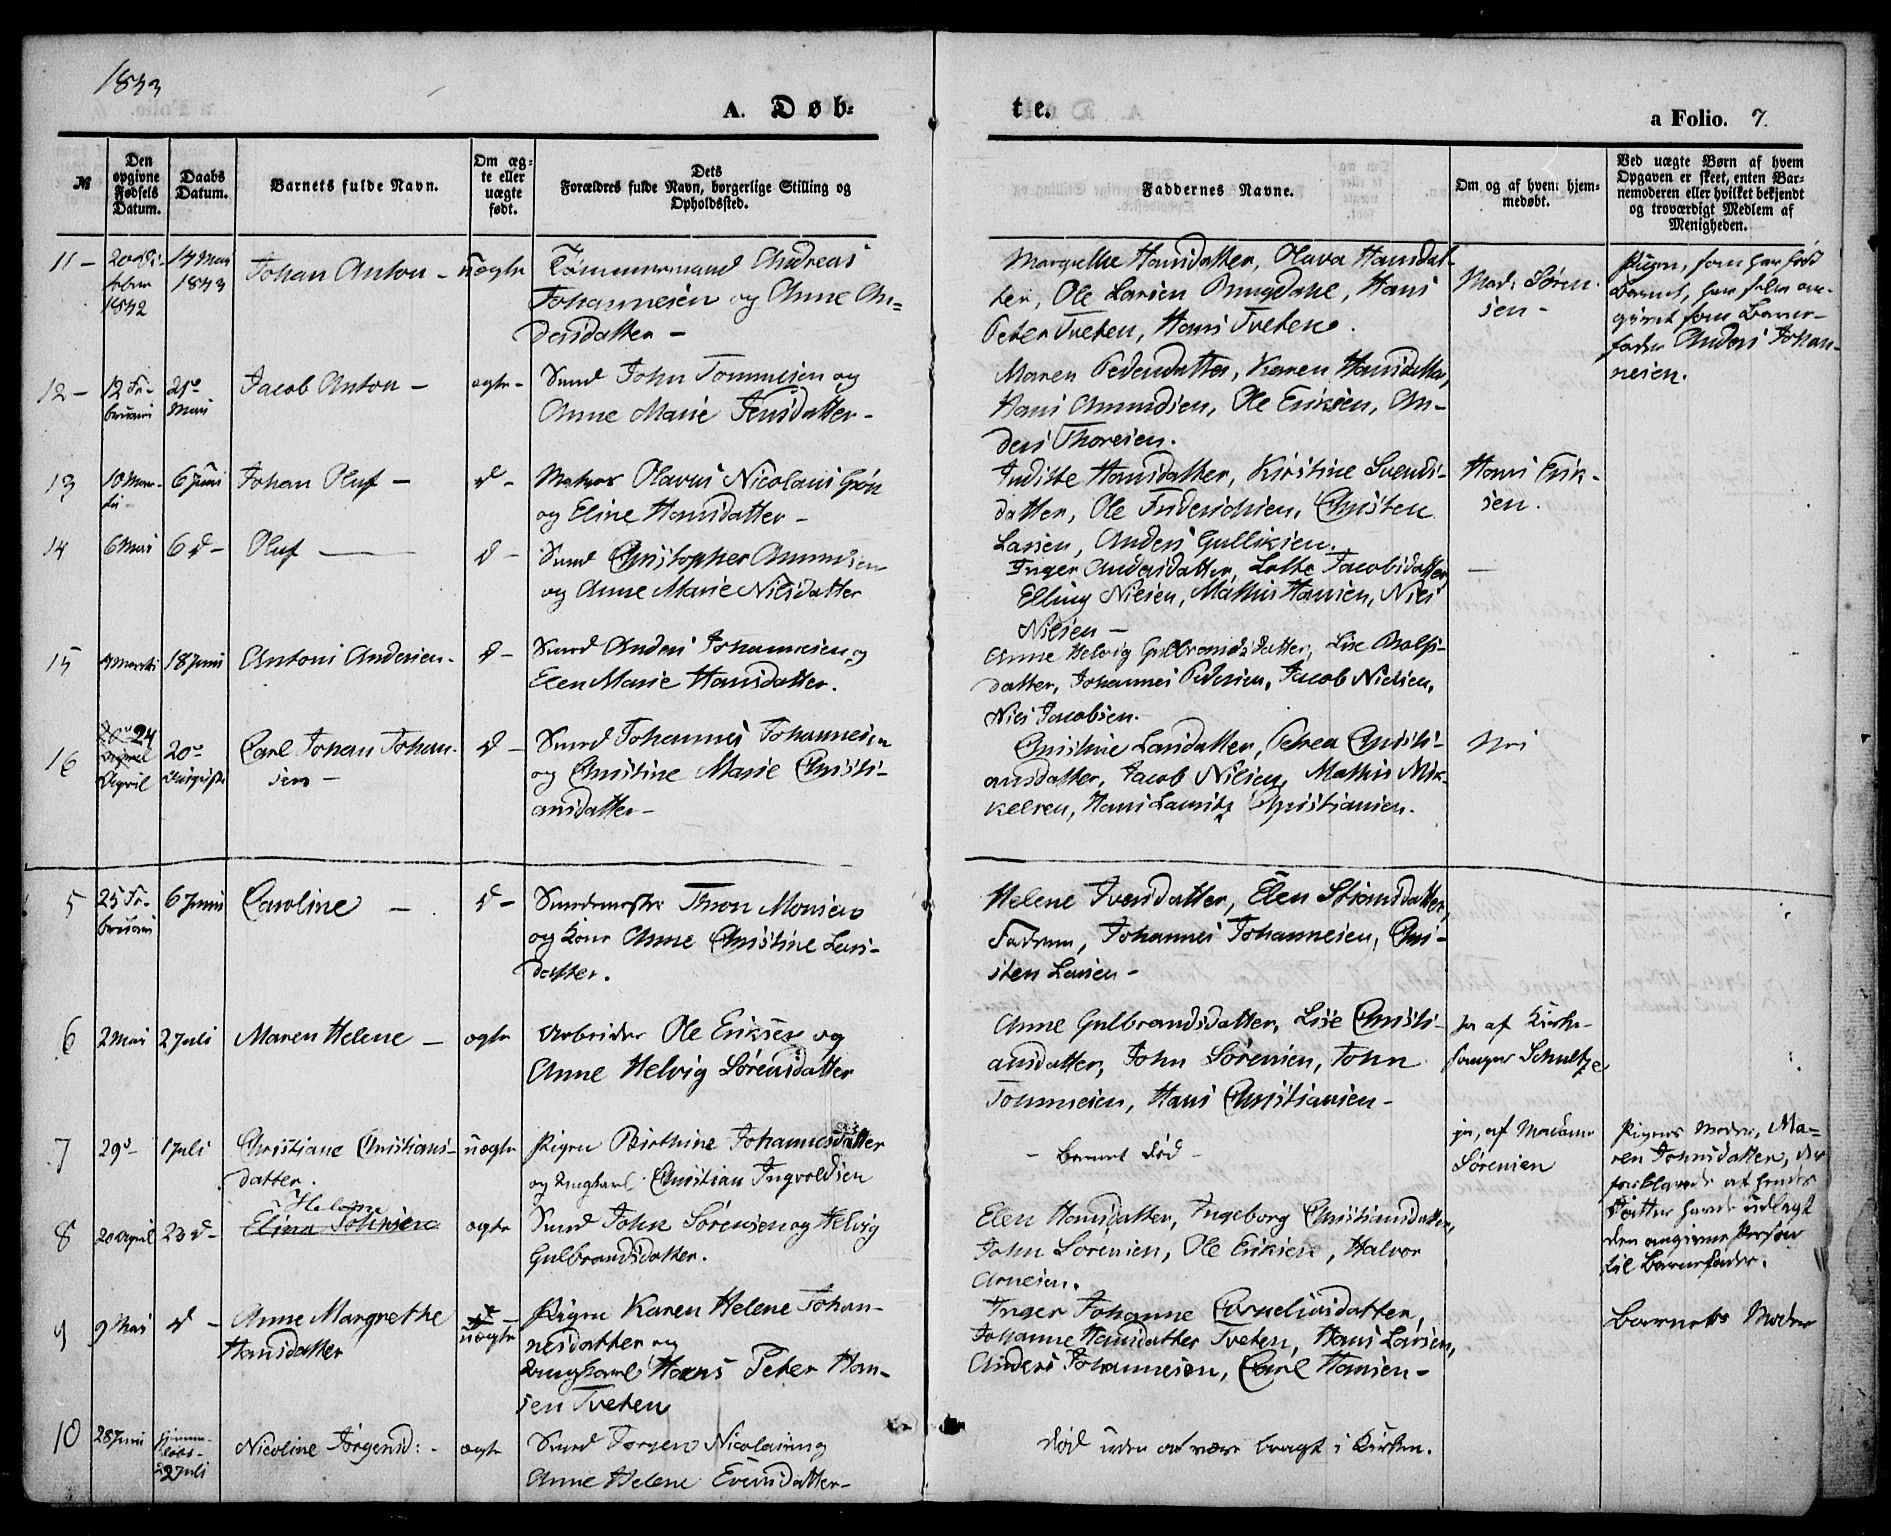 1843
A. Døb-
te.
a Folio. 7.
№
Den opgivne Fødsels Datum.
Daabs Datum.
Barnets fulde Navn.
Om ægte eller uægte født.
Dets
Forældres fulde Navn, borgerlige Stilling og
Opholdssted.
Faddernes Navne.
Om og af hvem hjem-
medøbt.
Ved uægte Børn af hvem
Opgaven er skeet, enten Bar-
nemoderen eller hvilket bekjendt
og troværdigt Medlem af
Menigheden.
11 -
1842
14 Mai
1843
Johan Anton -
uægte
Tømmermand Andreas
Johannesen og Anne An-
dersdatter -
Margrethe Hansdatter, Olava Hansdat-
ter, Ole Larsen Bugdahl, Hans
Peter Tveten, Hans Tveten.
Mad. Søren-
sen -
Pigen, som har født
Barnet, har selv an-
givet som Barne-
fader Anders Johan-
nesen.
12 -
12 Fe-
bruari
21de
Mai
Jacob Anton -
ægte -
Smed John Tommesen og
Anne Marie Jensdatter -
Maren Pedersdatter, Karen Hansdatter,
Hans Amundsen, Ole Eriksen, An-
ders Thoresen.
13
10 Mar-
6 Juni
Johan Oluf -
d -
Matros Olavus Nicolaus Grøn
og Eline Hansdatter -
Judithe Hansdatter, Kirstine Svends-
datter, Ole Frederichsen, Christen
Larsen, Anders Gulliksen.
Hans Erik-
sen.
14
6 Mai
6 d -
Oluf
d -
Smed Christopher Amundsen
og Anne Marie Nielsdatter
Inger Andersdatter, Lotte Jacobsdatter,
Elling Nielsen, Mathis Hansen, Niels
Nielsen -
15
Marts
18 Juni
Antoni Andersen -
d -
Smed Anders Johannesen og
Elen Marie Hansdatter.
Anne Helvig Gulbrandsdatter, Lise Rolfs-
datter, Johannes Pedersen, Jacob Nielsen,
Niels Jacobsen.
16
24
April
20de
Augusti
Carl Johan Johan-
sen -
d -
Smed Johannes Johannesen
og Christine Marie Christi-
ansdatter -
Christine Larsdatter, Petrea Christi-
ansdatter, Jacob Nilsen, Mathis Mik-
kelsen, Hans Lauritz Christiansen.
Nei
5
25 Fe-
bruari
6 Juni
Caroline -
d -
Smedemester Thron Monsen
og Kone Anne Christine Lars-
datter.
Helene Iversdatter, Elen Stiansdatter,
Faderen, Johannes Johannesen, Chri-
sten Larsen -
6
2 Mai
2 Juli
Maren Helene -
ægte
Arbeider Ole Eriksen og
Anne Helvig Sørensdatter
Anne Gulbrandsdatter, Lise Christi-
ansdatter, John Sørensen, John
Tommesen, Hans Christiansen -
ja af Kirke-
sanger Schultze
7
29 d
1 Juli
Christiane Christians-
datter.
uægte
Pigen Birthine Johannesdatter
og Ungkarl Christian Ingvoldsen
- Barnet død -
ja, af Madame
Sørensen
Pigens Moder, Ma-
ren Johnsdatter, der
forklarede at hendes
Datter havde udlagt
den angivne Person
til Barnefader.
8
20 April
23 d -
Helene
Elina Johnsen
ægte
Smed John Sørensen og Helvig
Gulbrandsdatter.
Elen Hansdatter, Ingeborg Christiansdatter,
John Sørensen, Ole Eriksen, Halvor
Arnesen.
9
9 Mai
d -
Anne Margrethe
Hansdatter
uægte
Pigen Karen Helene Johan-
nesdatter og
Ungkarl Hans Peter Han-
sen Tveten
Inger Johanne Corneliusdatter,
Johanne Hansdatter Tveten, Hans Larsen,
Anders Johannesen, Carl Hansen -
Barnets Moder
10
28 Juni
Hjemme-
døbt -
2 Juli
Nicoline Jørgensd: -
ægte
Smed Jørgen Nicolaisen og
Anne Helene Evensdatter -
død uden at være bragt i Kirken.